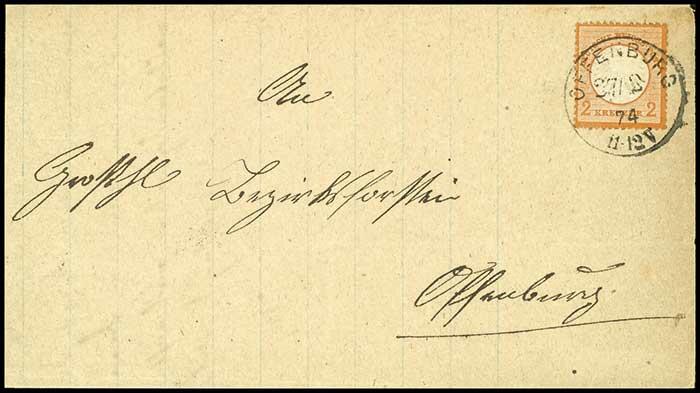 OFFENBURG
74
11-12V
2 KREUZER 2
An
Großhl Bezirksforstei
Offenburg